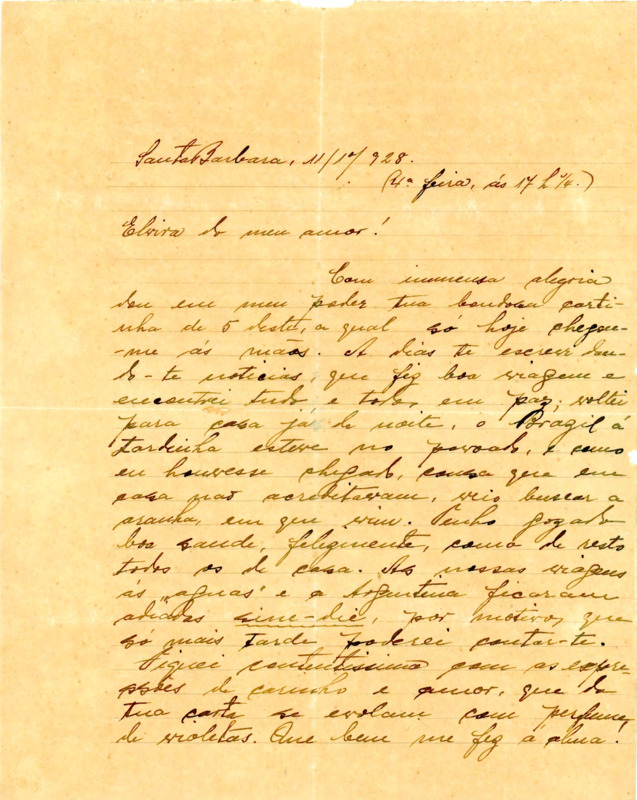 Santa Barbara, 11/1º/928.
(4ª feira, ás 17 h ¼.)
Elvira do meu amor!
Com immensa alegria
dou em meu poder tua bondosa carti-
nha de 5 deste, a qual só hoje chegou-
-me ás mãos. A dias te escrevi dan-
do-te noticias, que fiz boa viagem e
encontrei tudo e todos em paz; voltei
para casa já de noite, o Brazil á
tardinha esteve no povoado, e como
eu houvesse chegado, cousa que em
casa não acreditavam, veio buscar a
aranha, em que vim. Tenho gozado
boa saude, felizmente, como de resto
todos os de casa. As nossas viagens
ás "aguas" e a Argentina ficaram
adiadas sine-die, por motivos que
só mais tarde poderei contar-te.
Fiquei contentissimo com as expre-
ssões de carinho e amor, que da
tua carta se evolam com perfume
de violetas. Que bem me fez á alma.